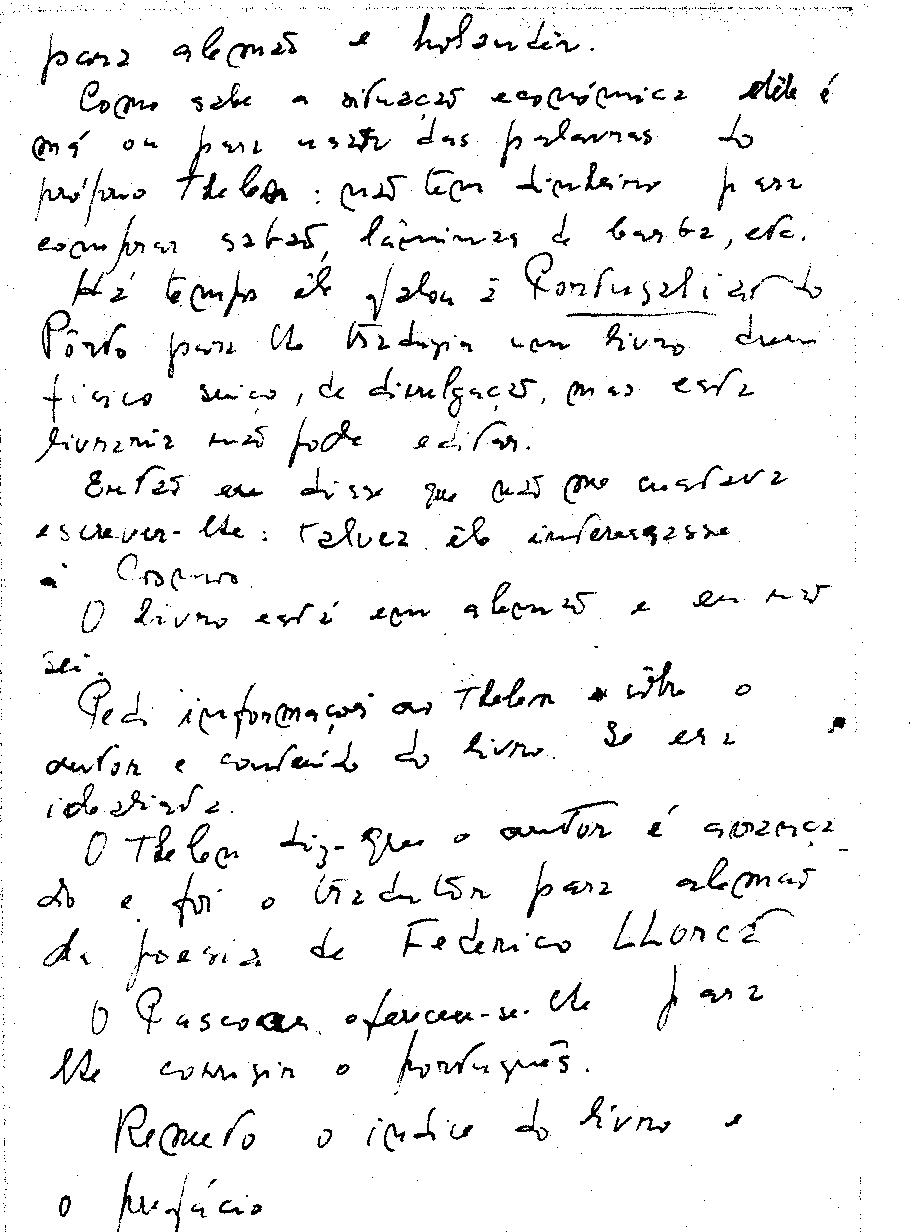 para alemão e holandês.
Como sabe a situação económica dêle é
má ou para usar das palavras do
próprio Thelen: não tem dinheiro para
comprar sabão, lâminas de barba, etc.
Há tempo êle falou à Portugália do
Pôrto para lhe traduzir um livro dum
fisico suiço, de divulgação, mas esta
livraria não pode editar.
Então eu disse que não me custava
escrever-lhe: talvez êle interessasse
à Cosmos.
O livro está em alemão e eu não
sei.
Pedi informações ao Thelen sôbre o
autor e conteúdo do livro. Se era
idealista.
O Thelen diz que o autor é avança
do e foi o tradutôr para alemão
da poesia de Federico LLorca
O Pascoaes ofereceu-se-lhe para
lhe corrigir o português.
Remeto o indice do livro e
o prefácio